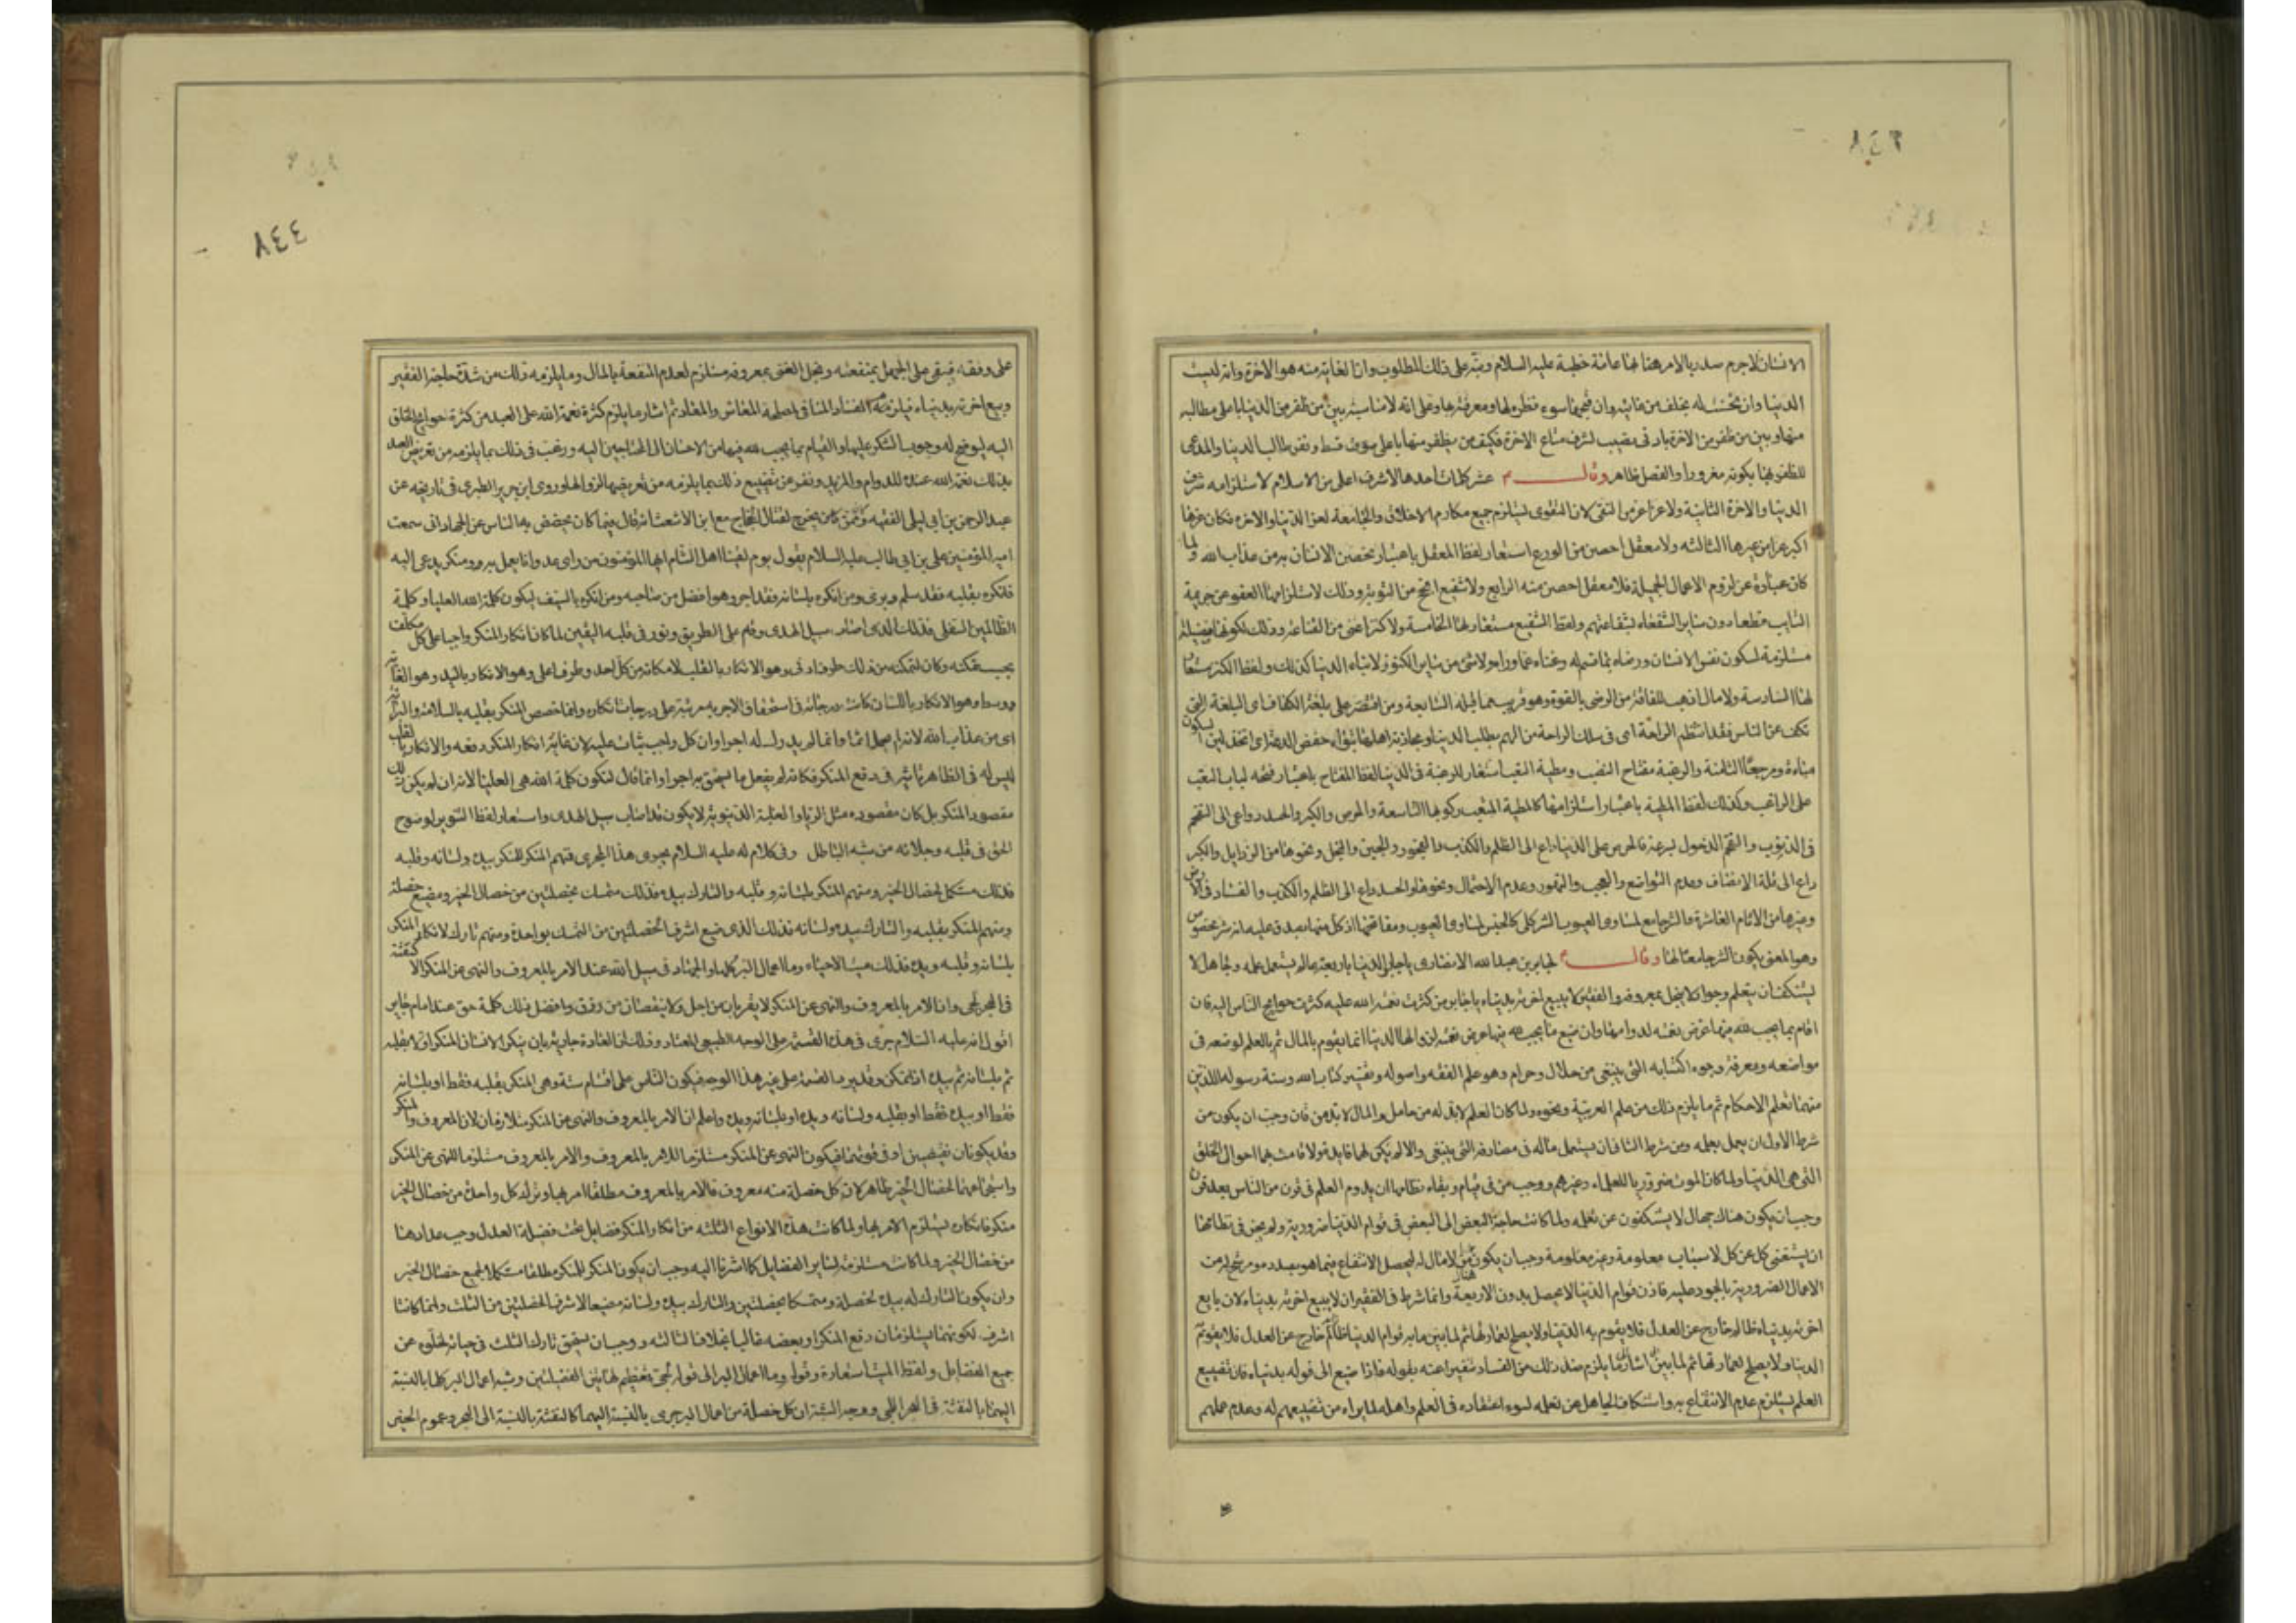 ٨٤٣
الانسان لاجرم سدر بالامر هنا لها عامة خطبة عليه السلام ونبّه على ذلك المطلوب وان الغاية منه هو الآخرة وانه ليست
الدنيا وان حسنت له بخلف من فايته وان فخمها سوء نظره لها ومعرفته بها وعلى انه لا مناسبة بين من ظفر من الدنيا باعلى مطالبه
منها وبين من ظفر من الآخرة بادنى نصيب لشرف متاع الآخرة فكيف من يظفر منها باعلى
للظفر بها بكونه مغرورا والفصل ظاهر وقال م عشر كلمات احدها لا شرف اعلى من الاسلام لاستلزامه شرف
الدنيا والاخرة الثانية ولا عز اعز من التقى لان التقوى يستلزم جميع مكارم الاخلاق والجامعة لعز الدنيا والآخرة فكان عزها
اكبر عزا من غيرها الثالثه ولا معقل احصن من الورع استعار لفظ المعقل باعتبار تحصن الانسان به من عذاب الله ولما
كان عبارة عن لزوم الاعمال الجميلة فلا معقل احصن منه الرابع ولا شفيع انجح من التوبة وذلك لاستلزامها العفو عن جريمة
التايب قطعا دون ساير الشفعاء بشفاعتهم ولفظ الشفيع مستعار لها الخامسة ولا كنز اغنى من القناعة وذلك لكونها فضيلة
مستلزمة لسكون نفس الانسان ورضاه بما قسم له وغناه عما وراءه ولا شى من ساير الكنوز لابناء الدنيا كذلك ولفظ الكنز مستعار
لها السادسة ولا مال اذهب للفاقة من الرضى بالقوت وهو قريب مما قبله السابعة ومن اقتصر على بلغة الكفاف اى البلغة التى
تكف عن الناس فقد انتظم الراحة اى فى سلك الراحة من الهم بطلب الدنيا ومجاذبة اهلها وتبوّا خفض الدعة اى اتخذ لين السكون
مباءة ومرجعا الثامنة والرغبة مفتاح النصب ومطية التعب استعار للرغبة فى الدنيا لفظ المفتاح باعتبار فتحه لباب التعب
على الراغب وكذلك لفظ المطية باعتبار استلزامها كالمطية المتعب ركوبها التاسعة والحرص والكبر والحسد دواعى الى التقحم
فى الذنوب والتقحم الدخول بسرعة فالحرص على الدنيا داع الى الظلم والكذب والفجور والجبن والبخل ونحوها من الرذايل والكبر
داع الى قلة الانصاف وعدم التواضع والعجب والتهور وعدم الاحتمال ونحوها والحسد داع الى الظلم والكذب والفساد فى الارض
وغيرها من الآثام العاشرة والشر جامع لمساوى العيوب الشر كلى كالجنس لمساوى العيوب ومقابحها اذ كل منها يصدق عليه انه شر مخصوص
وهو المعنى بكون الشر جامعا لها وقال م لجابر بن عبد الله الانصارى يا جابر الدنيا باربعة عالم يستعمل علمه وجاهل لا
يستنكف ان يتعلم وجواد لا يبخل بمعروفه والفقير لا يبيع اخرته بدنياه يا جابر من كثرت نعمة الله عليه كثرت حوايج الناس اليه فان
اقام بما يجب لله فيها عرض نعمته لدوامها وان ضيع ما يجب لله فيها عرض نعمته لزوالها الدنيا انما يقوم بالمال ثم بالعلم لوضعه فى
مواضعه ومعرفة وجوه اكتسابه التى ينبغى من حلال وحرام وهو علم الفقه واصوله وتفسير كتاب الله وسنة رسوله اللذين
منهما تعلم الاحكام ثم ما يلزم ذلك من علم العربية ونحوه ولما كان العلم لابد له من حامل والمال لابد من قان وجب ان يكون من
شرط الاول ان يعمل بعلمه ومن شرط الثانى ان يستعمل ماله فى مصارفه التى ينبغى والا لم يكن لهما فايدة ولا قامت بهما احوال الخلق
التى هى الدنيا ولما كان الموت ضروريا للعلماء وغيرهم ووجب من فى قيام وبقاء نظامها ان يدوم العلم فى قرن من الناس بعد قرن
وجب ان يكون هناك جهال لا يستنكفون عن تعلمه ولما كانت حاجة البعض الى البعض فى قوام الدنيا ضرورية ولم يمض فى نظامها
ان يستغنى كل عن كل لاسباب معلومة وغير معلومة وجب ان يكون هناك من لا مال له ليحصل الانتفاع فيما هو بصدده مو
الاعمال الضرورية بالجود عليه فاذن قوام الدنيا لا يحصل بدون الاربعة وانما شرط فى الفقير ان لا يبيع اخرته بدنياه لان بايع
اخرته بدنياه ظالم خارج عن العدل فلا يقوم به الدنيا ولا يصلح لعمارتها ثم لما بين ما به قوام الدنيا ظالم خارج عن العدل فلا يقوم به
الدنيا ولا يصلح لعمارتها ثم لما بين اشار الى ما يلزم ضد ذلك من الفساد تنفيرا عنه بقوله فاذا ضيع الى قوله بدنياه فان تضييع
العلم يستلزم عدم الانتفاع به واستنكاف الجاهل من تعلمه لسوء اعتقاده فى العلم واهله لما يراه من تضييعهم له وعدم عملهم
٨٤٤
على وفقه فيبقى على الجهل بمنفعته وبخل الغنى بمعروفه مستلزم لعدم المنفعة بالمال وما يلزمه ذلك من شدة حاجة الفقير
وبيع اخرته بدنياه فيلزمه الفساد المنافى لمصلحة المعاش والمعاد ثم اشار ما يلزم كثرة نعمة الله على العبد من كثرة حوايج الخلق
اليه ليوضح له وجوب الشكر عليها والقيام بما يجب لله فيها من الاحسان الى المحتاجين اليه ورغب فى ذلك بما يلزمه من تعريض العبد
بذلك نعمة الله عنده للدوام والمزيد ونفر عن تضييع ذلك بما يلزمه من تعريضها لزوالها وروى ابن جرير الطبرى فى تاريخه عن
عبد الرحمن بن ابى ليلى الفقيه وكان ممن يخرج لقتال الحجاج مع ابن الاشعث انه قال فيما كان يحضض به الناس عن الجهاد انى سمعت
امير المؤمنين على بن ابى طالب عليه السلام يقول يوم لقينا اهل الشام ايها المؤمنون من راى عدوانا يعمل به ومنكر يدعى اليه
فانكره بقلبه فقد سلم وبرئ ومن انكره بلسانه فقد اجر وهو افضل من صاحبه ومن انكره بالسيف ليكون كلمة الله العليا وكلمة
الظالمين السفلى فذلك الذى اصاب سبيل الهدى وقام على الطريق ونور فى قلبه اليقين لما كان انكار المنكر واجبا على كل مكلف
بحسب تمكنه وكان لتمكنه من ذلك طرف ادنى وهو الانكار بالقلب لامكانه من كل احد وطرف اعلى وهو الانكار باليد وهو الغاية
ووسط وهو الانكار باللسان كانت درجاته فى استحقاق الاجر به مرتبة على درجات انكاره وانما خصص المنكر بقلبه بالسلامة والبرائة
اى من عذاب الله لانه لم يحمل اثما وانما لم يذكر له اجرا وان كل واجب يثاب عليه لان غاية انكار المنكر دفعه والانكار بالقلب
ليس له فى الظاهر تاثير فى دفع المنكر فكانه لم يفعل ما يستحق به اجرا وانما قال لتكون كلمة الله هى العليا لانه ان لم يكن ذلك
مقصود المنكر بل كان مقصوده مثل الريا والغلبة الدنيوية لا يكون قد اصاب سبيل الهدى واستعار لفظ التنوير لوضوح
الحق فى قلبه وجلائه من شبه الباطل وفى كلام له عليه السلام يجرى هذا المجرى فمنهم المنكر للمنكر بيده ولسانه وقلبه
فذلك مستكمل لخصال الخير ومنهم المنكر بلسانه وقلبه والتارك بيده فذلك متمسك بخصلتين من خصال الخير ومضيع خصلة
ومنهم المنكر بقلبه والتارك بيده ولسانه فذلك الذى ضيع اشرف الخصلتين من الثلث وتمسك بواحدة ومنهم تارك لانكار المنكر
بلسانه وقلبه ويده فذلك ميت الاحياء وما اعمال البر كلها والجهاد فى سبيل الله عند الامر بالمعروف والنهى عن المنكر الا كنفثة
فى بحر لجى وان الامر بالمعروف والنهى عن المنكر لا يقربان من اجل ولا ينقصان من رزق وافضل ذلك كلمة حق عند امام جاير
اقول انه عليه السلام جرى فى هذه القسمة على الوجه الطبيعى المعتاد وذلك ان العادة جارية بان ينكر الانسان المنكر اولا بقلبه
ثم بلسانه ثم بيده ان تمكن وقد يرد القسمة على غير هذا الوجه فيكون الناس على اقسام ستة وهى المنكر بقلبه فقط او بلسانه
فقط او بيده فقط او بقلبه ولسانه ويده او بلسانه ويده واعلم ان الامر بالمعروف والنهى عن المنكر متلازمان لان المعروف والمنكر
وقد يكونان نقيضين او فى قوتهما فيكون النهى عن المنكر مستلزما للامر بالمعروف والامر بالمعروف مستلزما للنهى عن المنكر
واستجماعهما لخصال الخير ظاهر لان كل خصلة منه معروف فالامر بالمعروف مطلقا امر بها وترك كل واحدة من خصال الخير
منكر فانكاره يستلزم الامر بها ولما كانت هذه الانواع الثلثه من انكار المنكر فضايل تحت فضيلة العدل وجب عدادها
من خصال الخير ولما كانت مستلزمة لساير الفضايل كما اشرنا اليه وجب ان يكون المنكر للمنكر مطلقا مستكملا لجميع خصال الخير
وان يكون التارك له بيده لخصلة ومتمسكا بخصلتين والتارك بيده ولسانه مضيعا لاشرف الخصلتين من الثلث وانما كانتا
اشرف لكونهما يستلزمان دفع المنكر او بعضه غالبا بخلاف الثالثه ووجب ان يستحق تارك الثلث فى حياته لخلوه عن
جميع الفضايل ولفظ الميت استعارة وقوله وما اعمال البر الى قوله لجى تعظيم لهاتين الفضيلتين وشبه اعمال البر كلها بالنسبة
اليهما بالنفثة فى البحر اللجى ووجه الشبه ان كل خصلة من اعمال البر جزئى بالنسبة اليهما كالنفثة بالنسبة الى البحر وعموم الخير